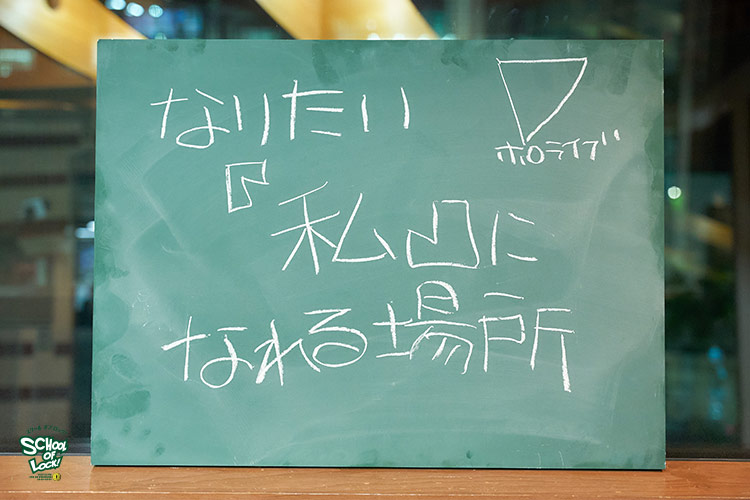 なりたい
ホロライブ
『私』に
なれる場所
SCHOOL
OF
LOCK!